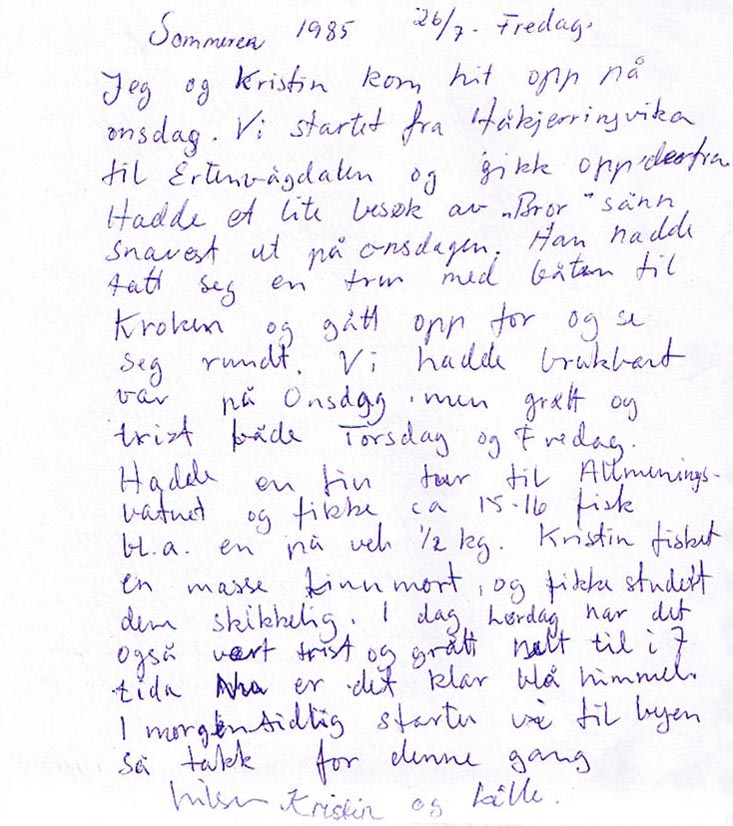 Sommeren 1985 26/7. Fredag.
Jeg og Kristin kom hit opp på
onsdag. Vi startet fra Håkjerringvika
til Ertenvågdalen og gikk opp derfra
Hadde et lite besøk av "Bror" sånn
snarest ut på onsdagen. Han hadde
tatt seg en trur med båten til
Kroken og gått opp for og se
seg rundt. Vi hadde brukbart
vær på Onsdag men grått og
trist både Torsdag og Fredag.
Hadde en fin tur til Allmenings-
vatnet og fikke ca 15-16 fisk
bl.a. en på veh 1/2 kg. Kristin fisket
en masse finnmort, og fikke studert
dem skikkelig. I dag Lørdag har det
også vært trist og grått helt til i 7
tida Nu er det klar blå himmel.
I morgen tidlig starter vi til byen
så takk for denne gang
hilsen Kristin og Kålle.